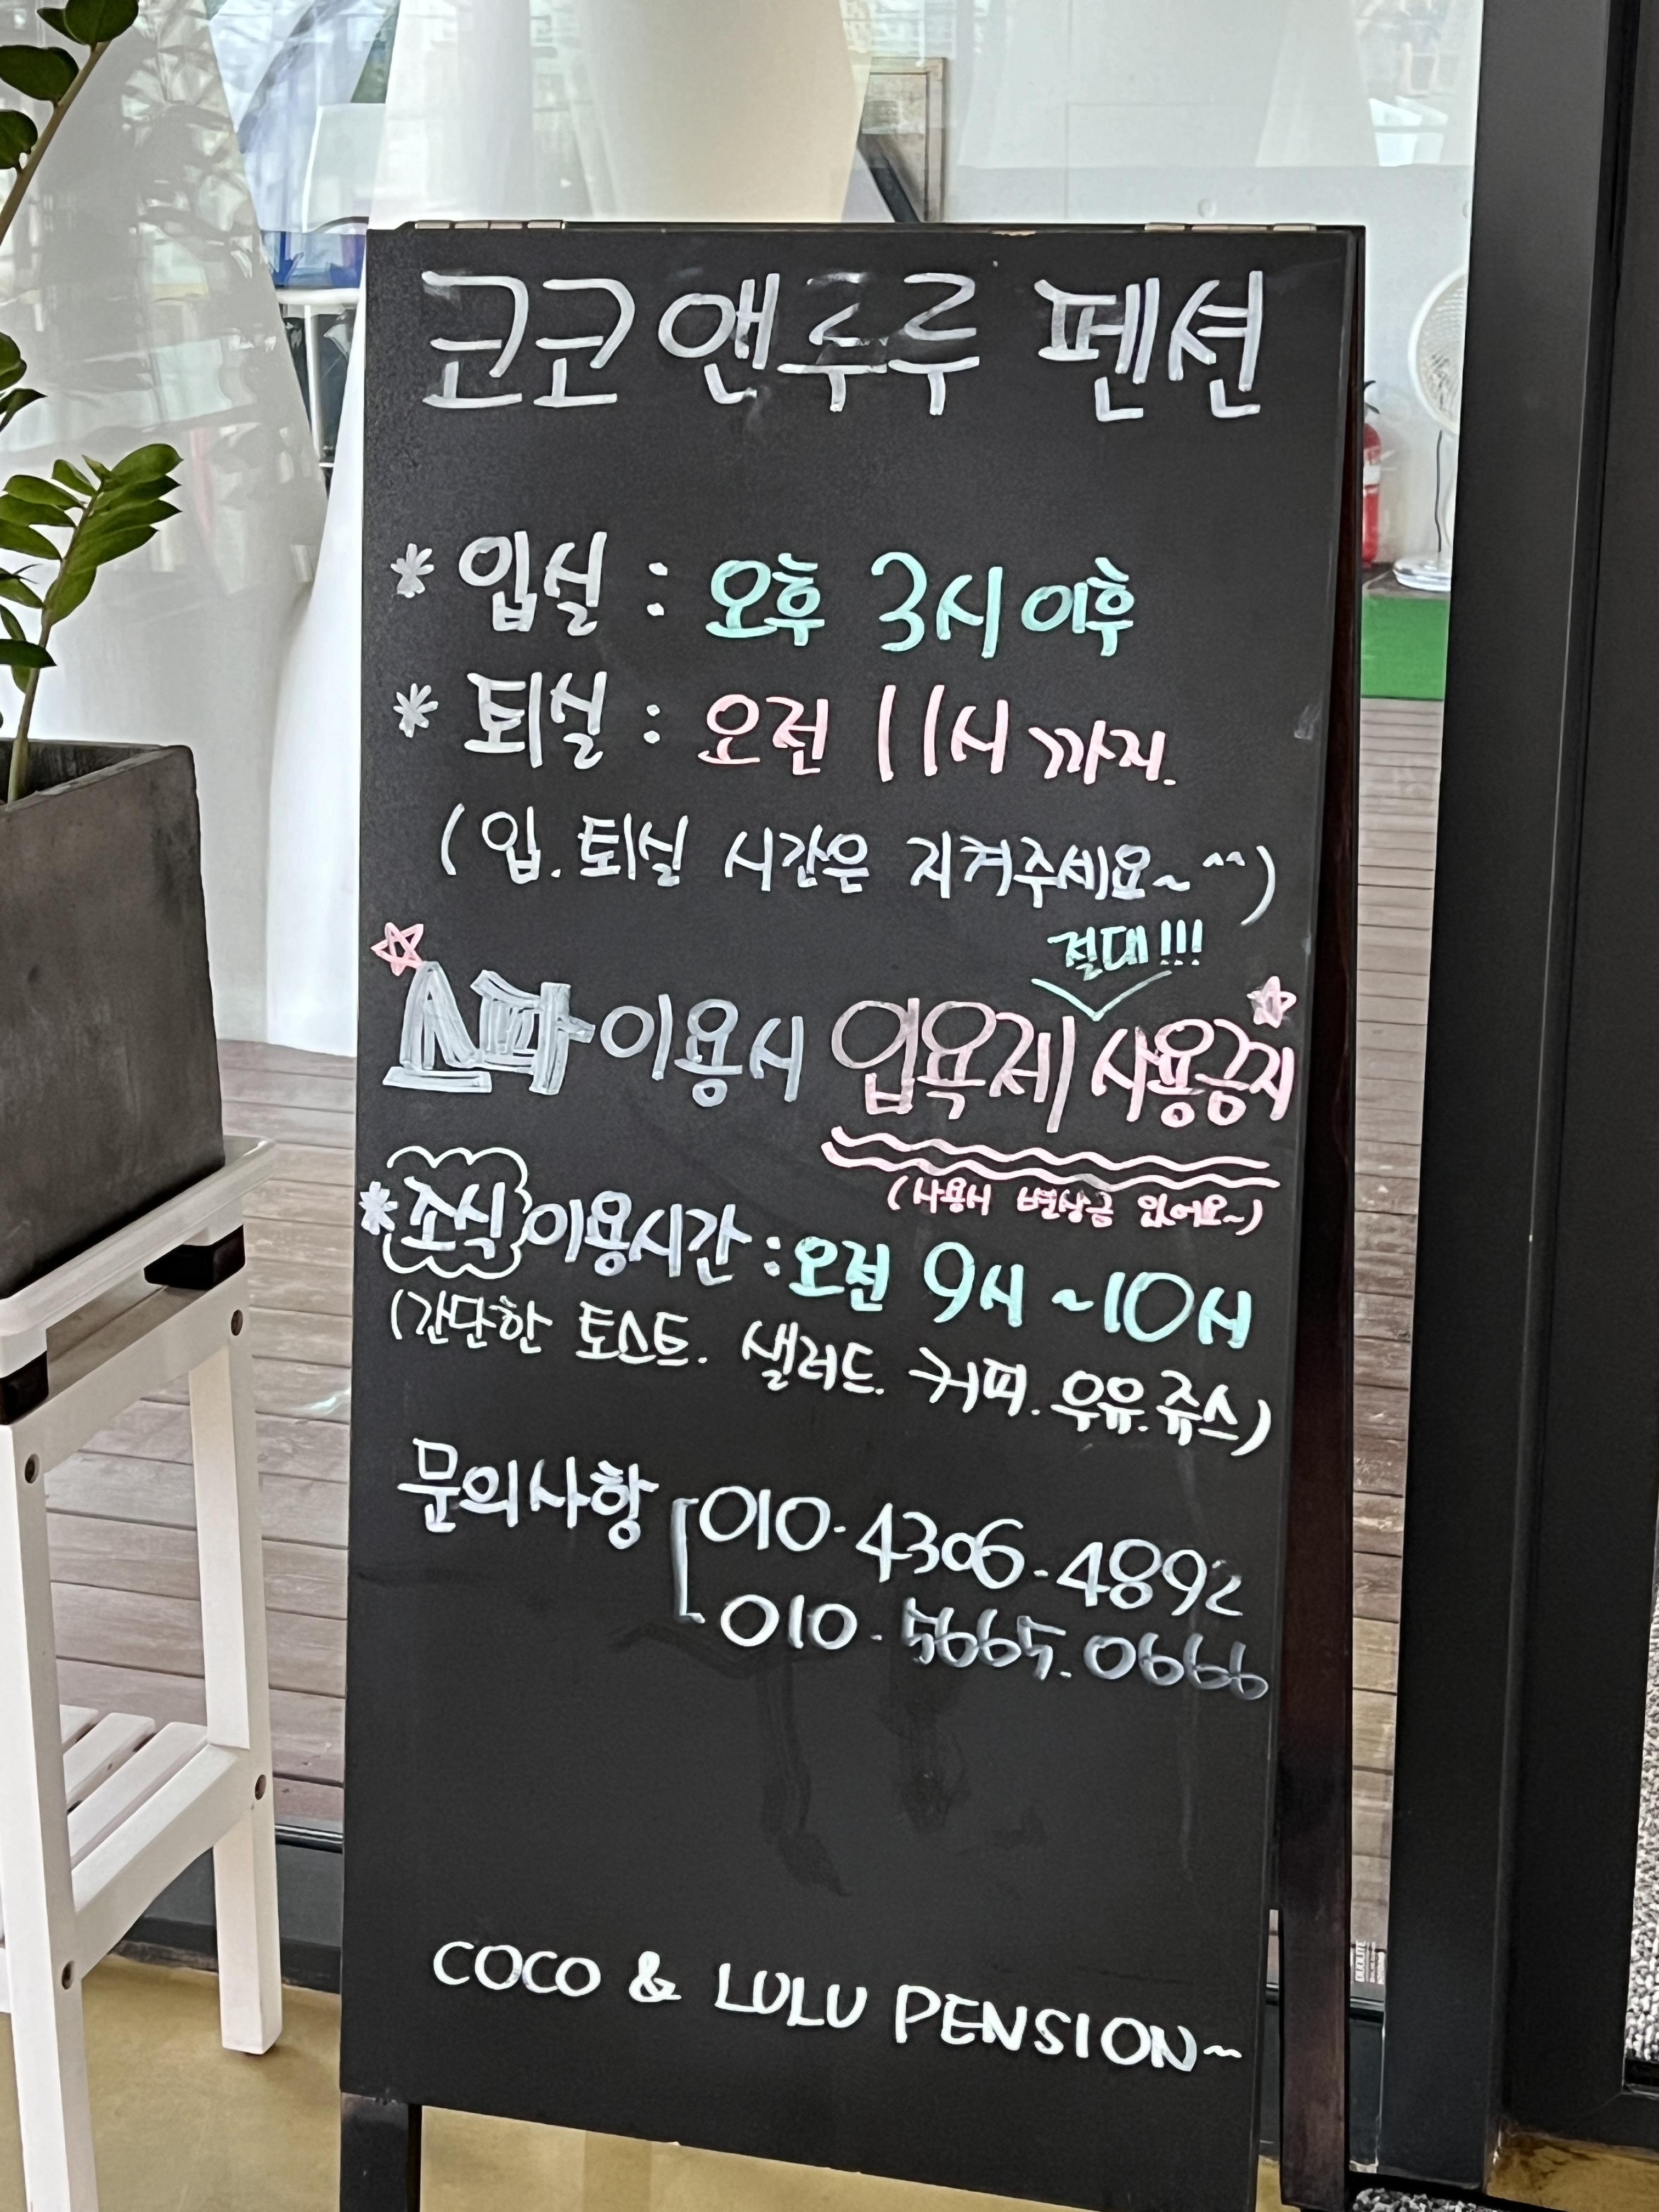 코코앤루루 펜션
* 입실 : 오후 3시 이후
* 퇴실 : 오전 11시 까지.
(입.퇴실 시간은 지켜주세요~^^)
절대!!!
스파 이용시 입욕제 사용금지
(사용시 변상금 있어요~)
* 조식 이용시간 : 오전 9시 ~10시
(간단한 토스트. 샐러드. 커피. 우유. 쥬스)
문의사항 010-4306-4892
010-5665.0666
COCO & LULU PENSION~